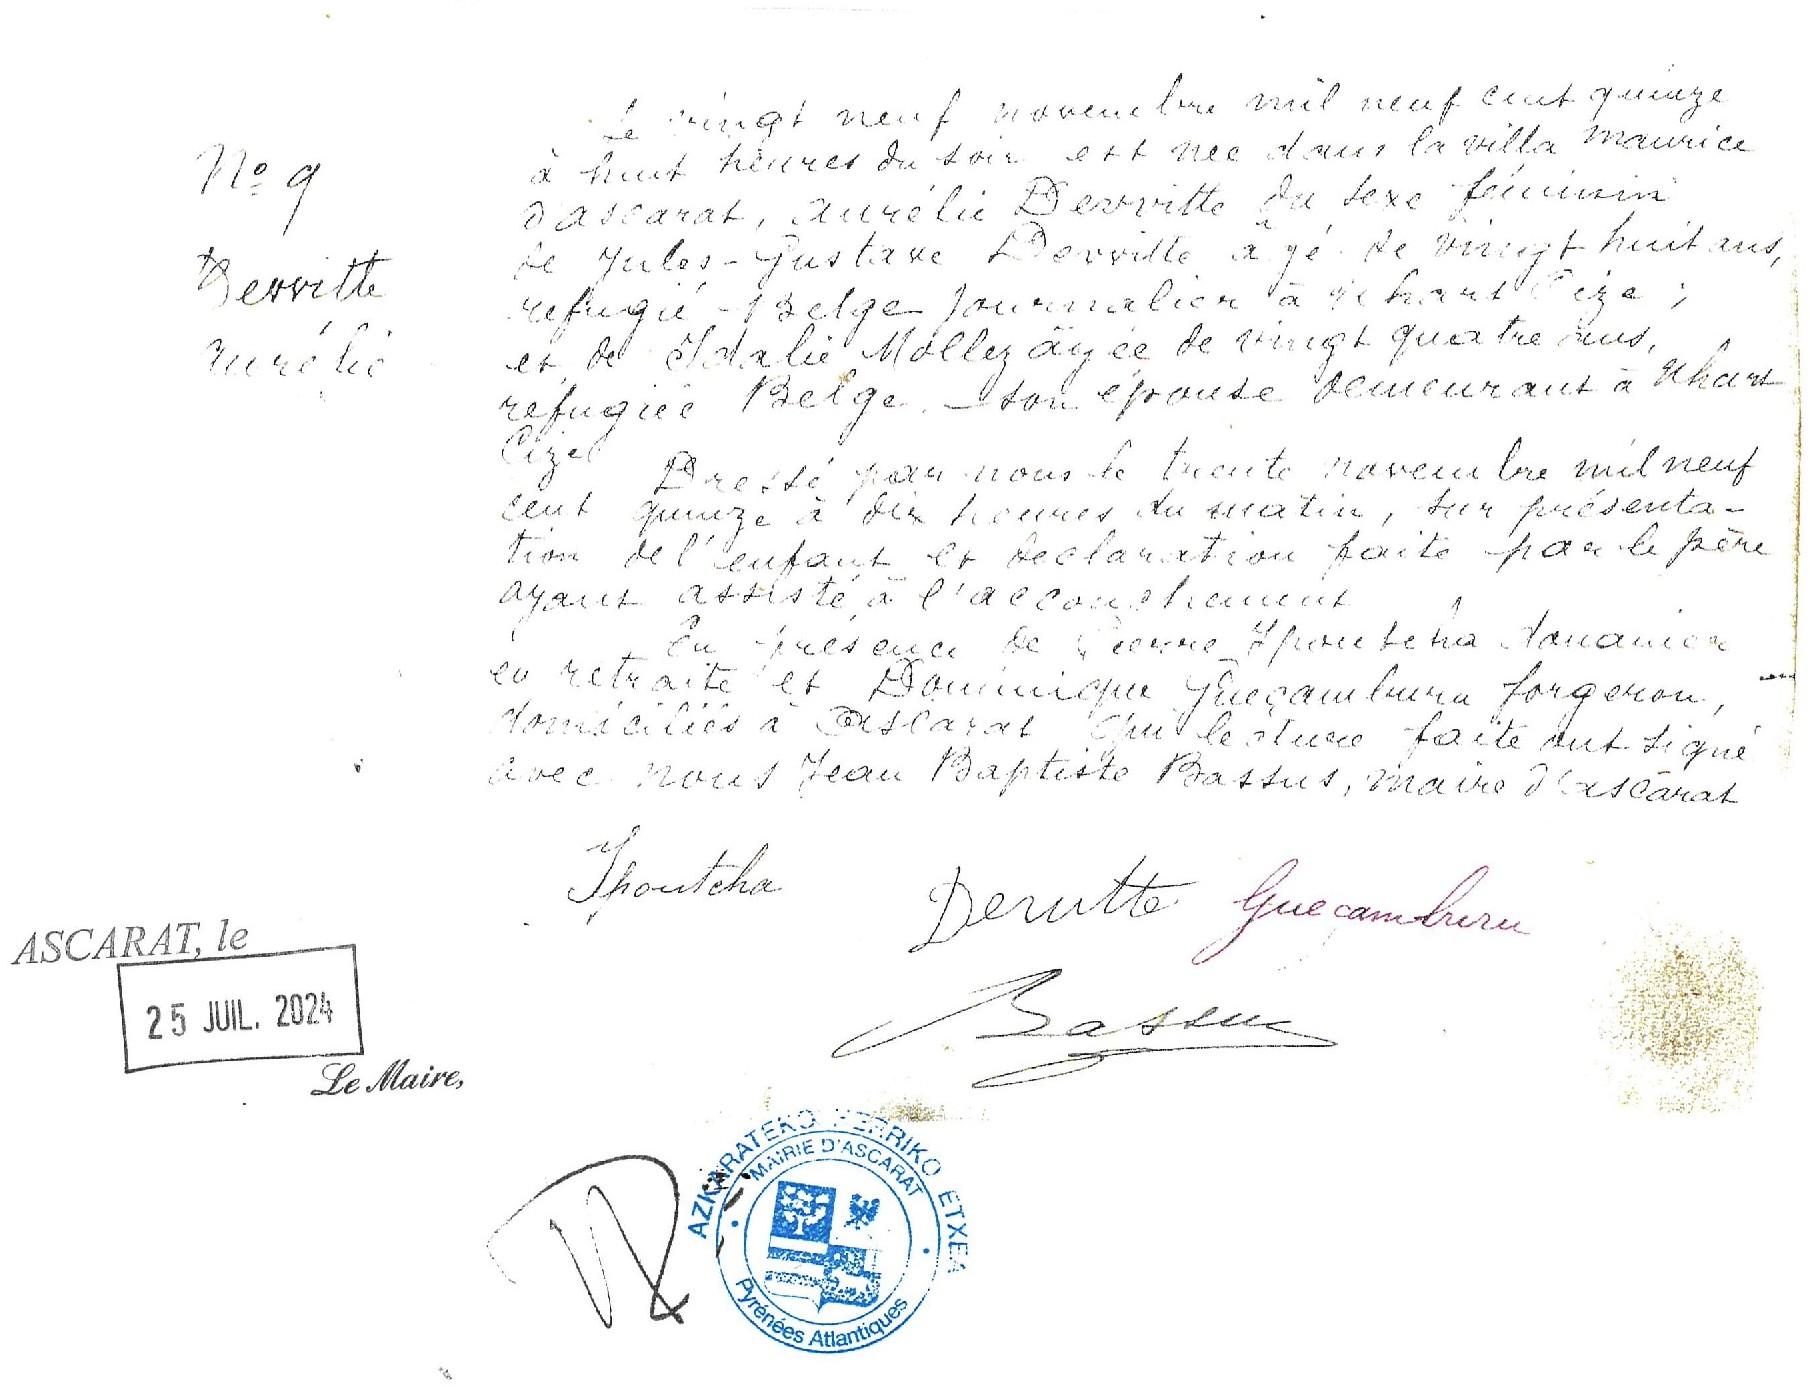 N° 9
Dervitte
Aurélie
Le vingt neuf novembre mil neuf cent quinze
à huit heures du soir est nee dans la villa Maurice
d'ascarat, Aurélie Dervitte du sexe féminin
de Jules-Gustave Dervitte âgé de vingt huit ans,
refugié Belge journalier à Uhart Cize ;
et de Idalie Mollez âgée de vingt quatre ans,
refugiée Belge - son épouse demeurant à Uhart
Cize
Dressé par nous le trente novembre mil neuf
cent quinze à dix heures du matin, sur présenta-
tion de l'enfant et declaration faite par le père
ayant assisté à l'accouchement
En présence de Pierre Ipoutcha douanier
en retraite et Dominique Gueçamburu forgeron,
domiciliés à Ascarat qui lecture faite ont signé
avec nous Jean Baptiste Bassus, maire d'ascarat
Ipoutcha
Derutte
Gueçamburu
Bassus
ASCARAT, le
25 JUIL. 2024
Le Maire,
AZKARATEKO HERRIKO ETXEA
MAIRIE D'ASCARAT
Pyrénées Atlantiques